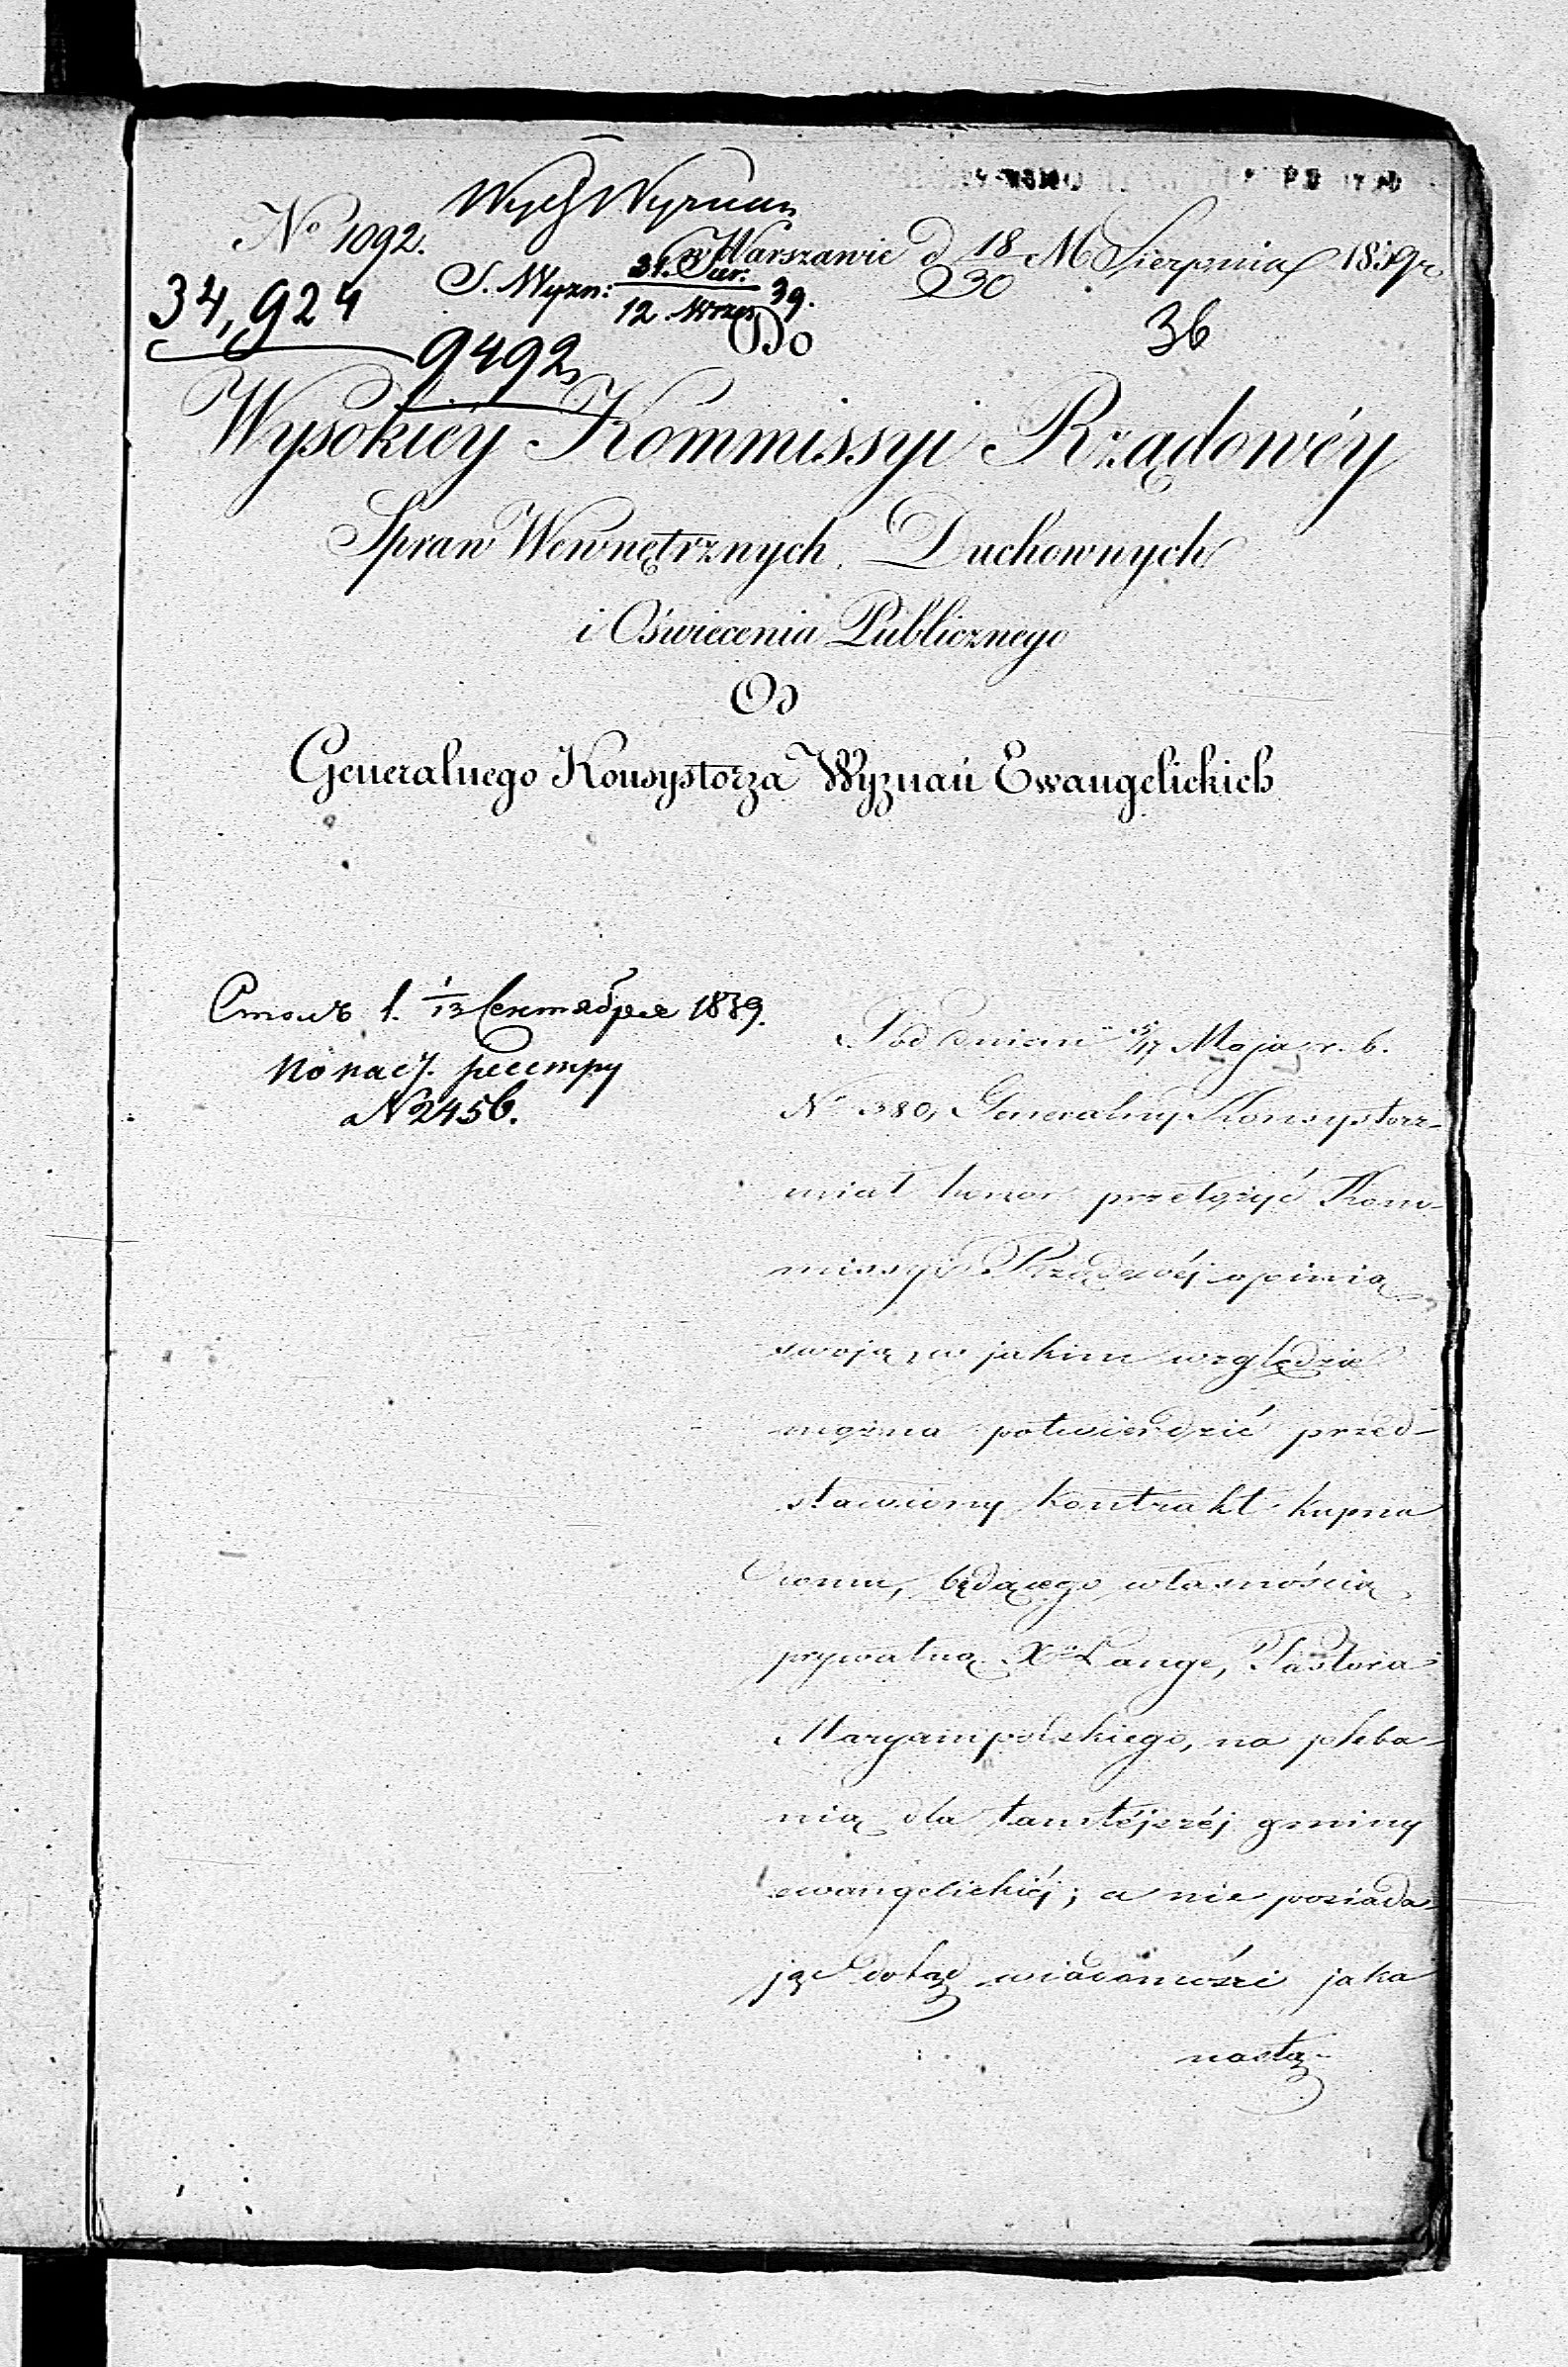 Wydz Wyznań
No 1092.
w Warszawie d 18/30 M Sierpnia 1839 r
34,924
S. Wyzn: 31. Sier. / 12. Wrześ. 39.
36
9492
Do
Wysokiéy Kommissyi Rządowéy
Spraw Wewnętrznych, Duchownych
i Oświecenia Publicznego
Od
Generalnego Konsystorza Wyznań Ewangelickich
1/13 Сентября 1839.
реестру
N 2456.
Pod dniem 5/17 Maja r. b.
No 380, Generalny Konsystorz
miał honor przełożyć Kom-
missyi Rządowéj opinią
swoją, w jakim względzie
można potwierdzić przed-
stawiony kontrakt kupna
domu, będącego własnością
prywatną Xa Lange, Pastora
Maryampolskiego, na pleba-
nią dla tamtéjszéj gminy
ewangelickiéj; a nie posiada-
jąc dotąd wiadomości jaka
nastą-